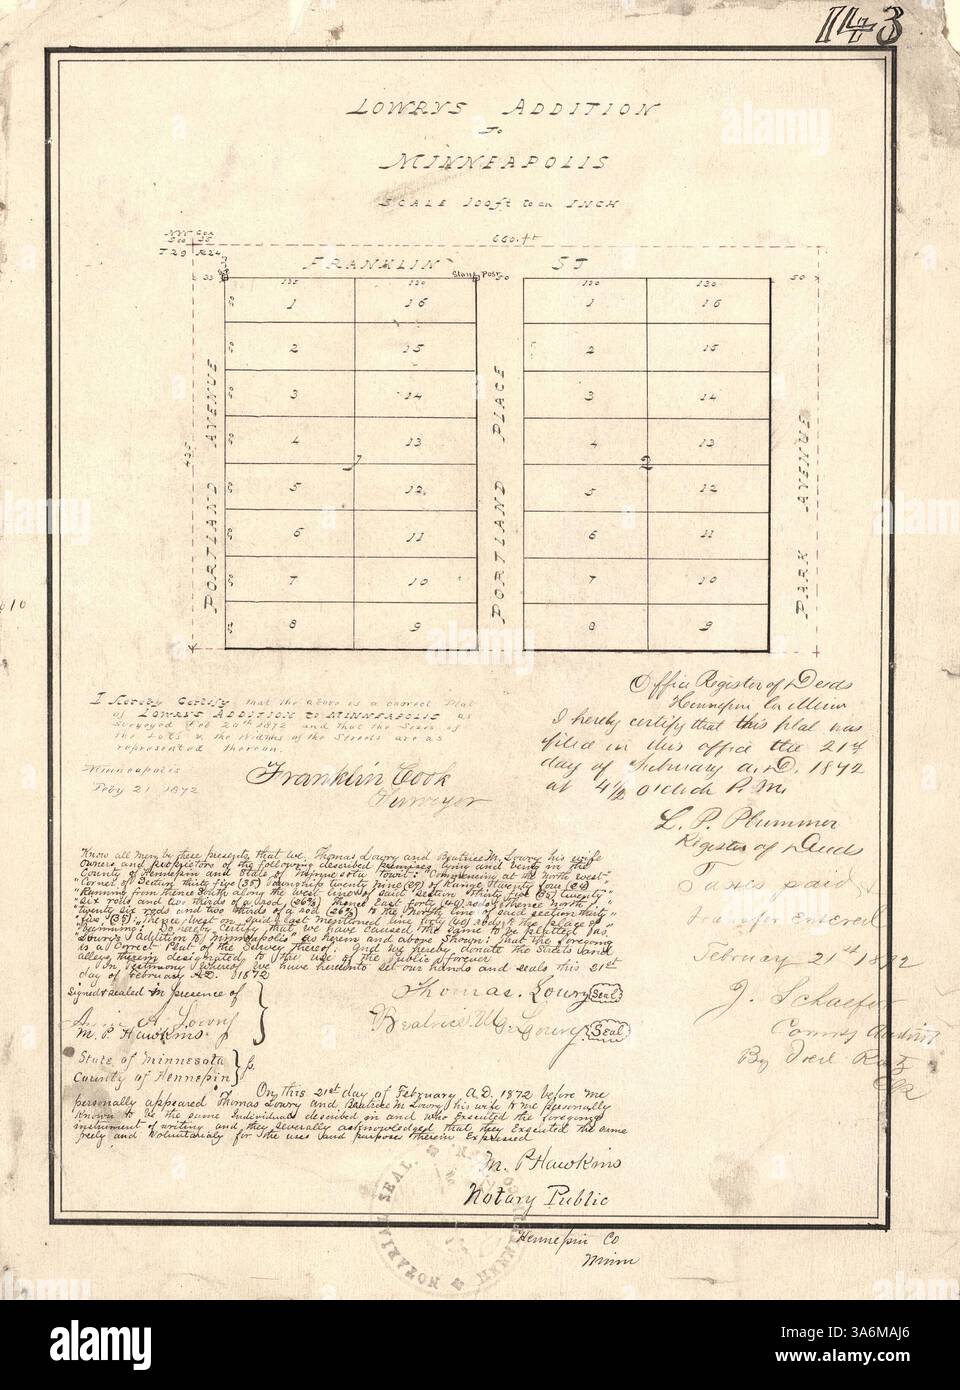 143
LOWRYS ADDITION
To
MINNEAPOLIS
SCALE 100ft to an INCH
NW Cor
Sec 35
T29 R24
660.ft
FRANKLIN ST
Stone Post
33 135 120 50 120 130 50
1 16 1 16
2 15 2 15
3 14 3 14
4 13 4 13
1 2
5 12 5 12
6 11 6 11
7 10 7 10
8 9 8 9
PORTLAND AVENUE
PORTLAND PLACE
PARK AVENUE
435
I Hereby Certify that the above is a correct Plat
of LOWRYS ADDITION to MINNEAPOLIS as
Surveyed Feb 20th 1872 and that the Sizes of
the Lots & the Widths of the Streets are as
represented thereon.
Minneapolis
Feby 21 1872
Franklin Cook
Surveyor
Office Register of Deeds
Hennepin Co Minn
I hereby certify that this plat was
filed in this office the 21st
day of February A.D. 1872
at 4½ o'clock P.M.
L. P. Plummer
Register of Deeds
Taxes paid &
transfer entered
February 21st 1872
J. Schaefer
County Auditor
By Fred
Know all men by these presents, that we, Thomas Lowry and Beatrice M. Lowry his wife
Owners and proprietors of the following described premises lying and being in the
County of Hennepin and State of Minnesota Towit: "Commencing at the North west
"Corner of Section thirty five (35) Township twenty nine (29) of Range twenty four (24)
"Running from thence South along the west line of said Section thirty five (35) twenty"
"six rods and two thirds of a rod (26⅔) thence East forty (40) rods, thence North"
"twenty six rods and two thirds of a rod (26⅔) to the North line of said section thirty"
"five (35); thence west on said last mentioned line forty (40) rods to the place of"
"beginning; Do hereby certify that, we have caused the same to be platted as
"Lowry's Addition to Minneapolis" as herein and above shown; that the foregoing
is a Correct Plat of the Survey thereof. And we hereby donate the Streets and
alleys therein designated to the use of the Public forever
In Testimony Whereof we have hereunto set our hands and seals this 21st
day of February A.D. 1872
Signed & sealed in presence of
M. P. Hawkins
Thomas. Lowry Seal
Beatrice M. Lowry Seal
State of Minnesota
County of Hennepin
On this 21st day of February A.D. 1872 before me
personally appeared Thomas Lowry and Beatrice M. Lowry, his wife to me personally
Known to be the same Individuals described in and who Executed the foregoing
instrument of writing and they severally acknowledged that they Executed the same
freely and Voluntarily for the uses and purpose therein Expressed
M. P Hawkins
Notary Public
Hennepin Co
Minn
NOTARIAL SEAL
HENNEPIN CO. MINN.
alamy
Image ID: 3A6MAJ6
www.alamy.com